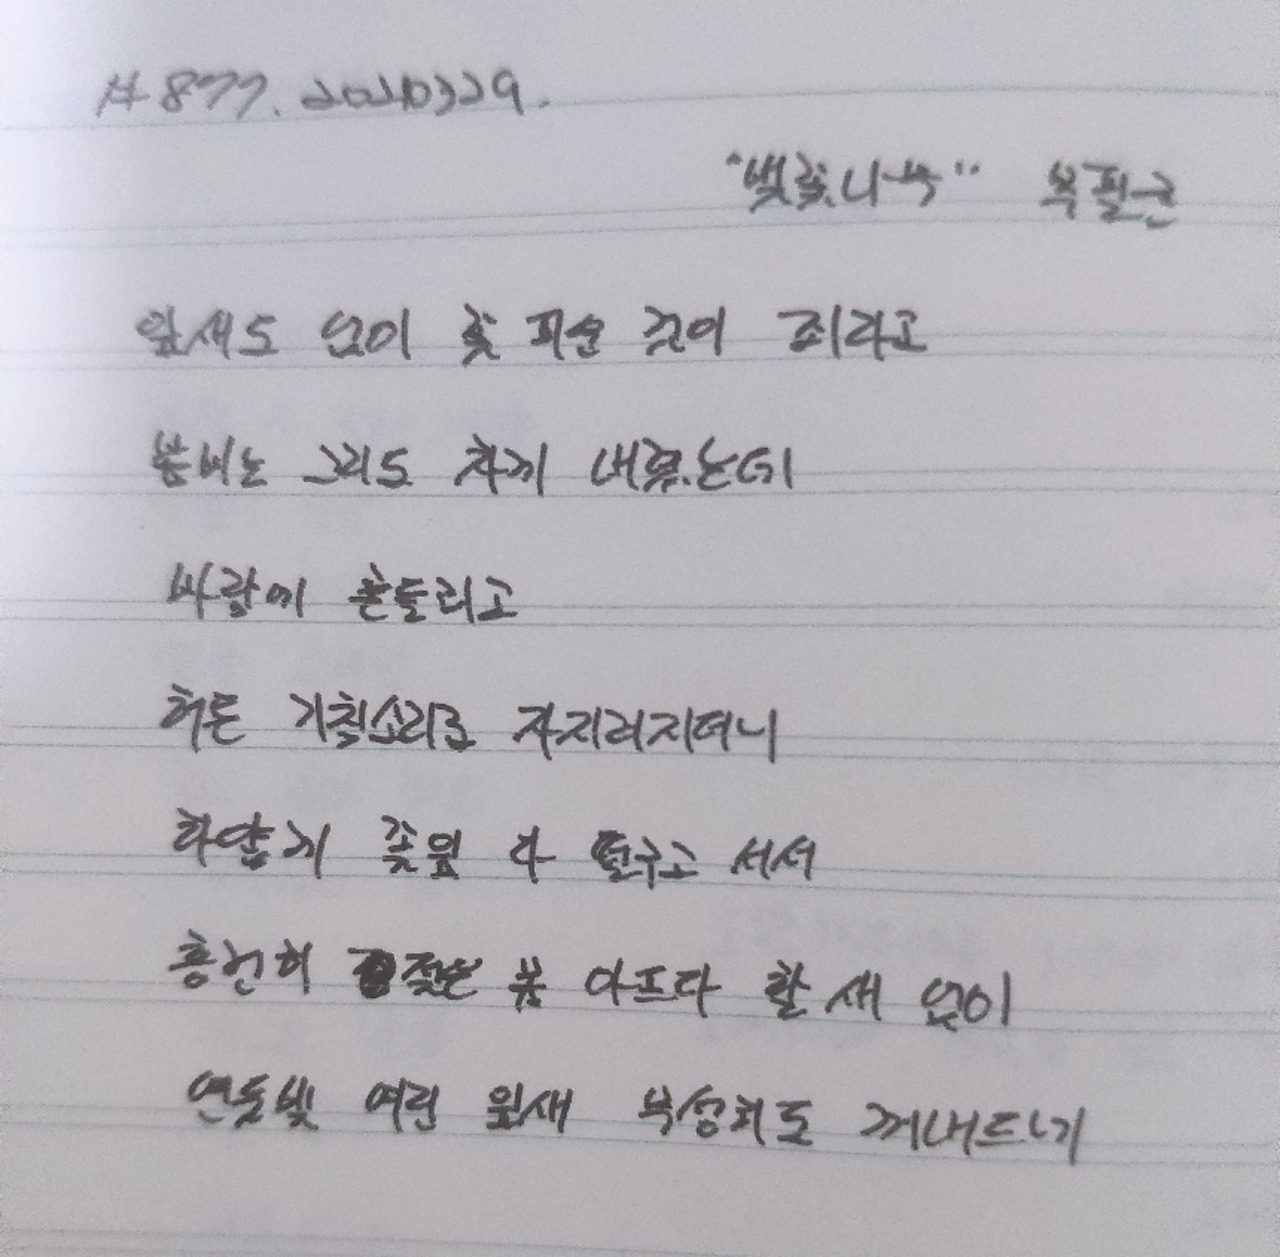 #877. 20210329.
"벚꽃나무" 목필균
잎새도 없이 꽃 피운 것이 죄라고
봄비는 그리도 차게 내렸는데
바람에 흔들리고
허튼 기침소리로 자지러지더니
하얗게 꽃잎 다 떨구고 서서
흥건히 젖은 몸 아프다 할 새 없이
연둣빛 여린 잎새 무성히도 꺼내드네